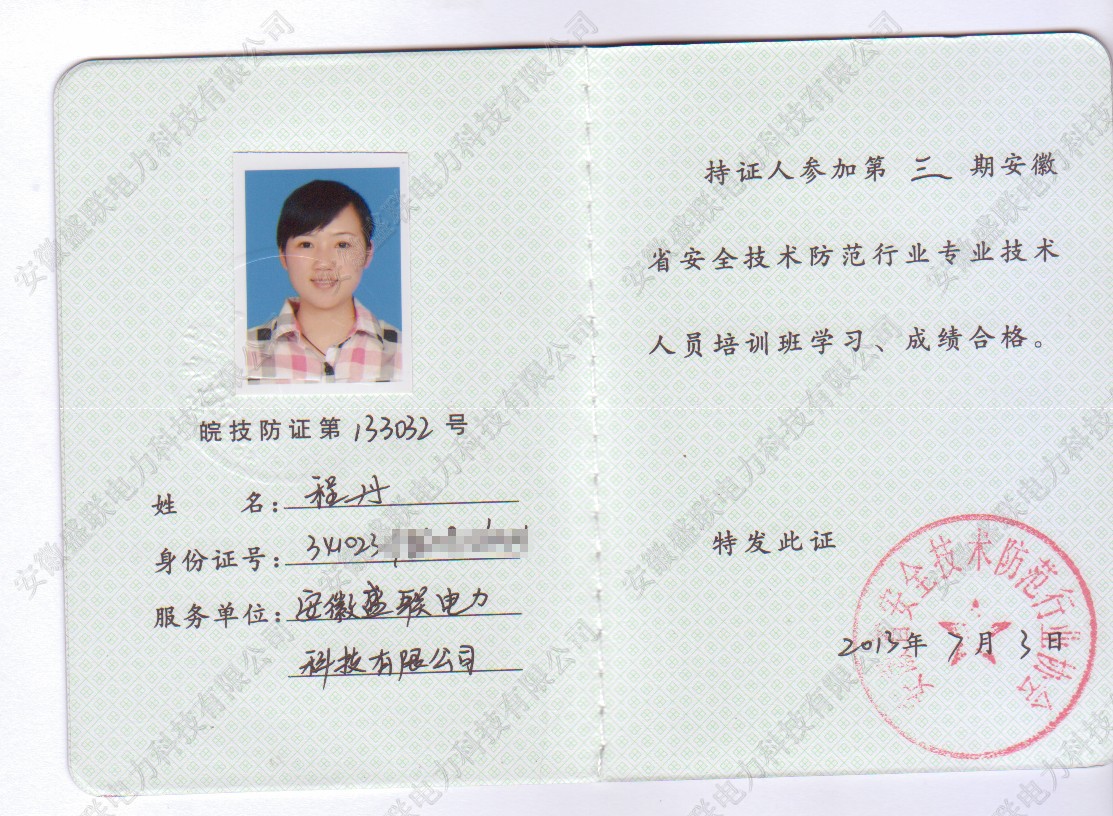 皖技防证第133032号
姓 名：程丹
身份证号：341023
服务单位：安徽盛联电力
科技有限公司
持证人参加第三期安徽
省安全技术防范行业专业技术
人员培训班学习、成绩合格。
特发此证
安徽省安全技术防范行业协会
2013年7月3日
安徽盛联电力科技有限公司